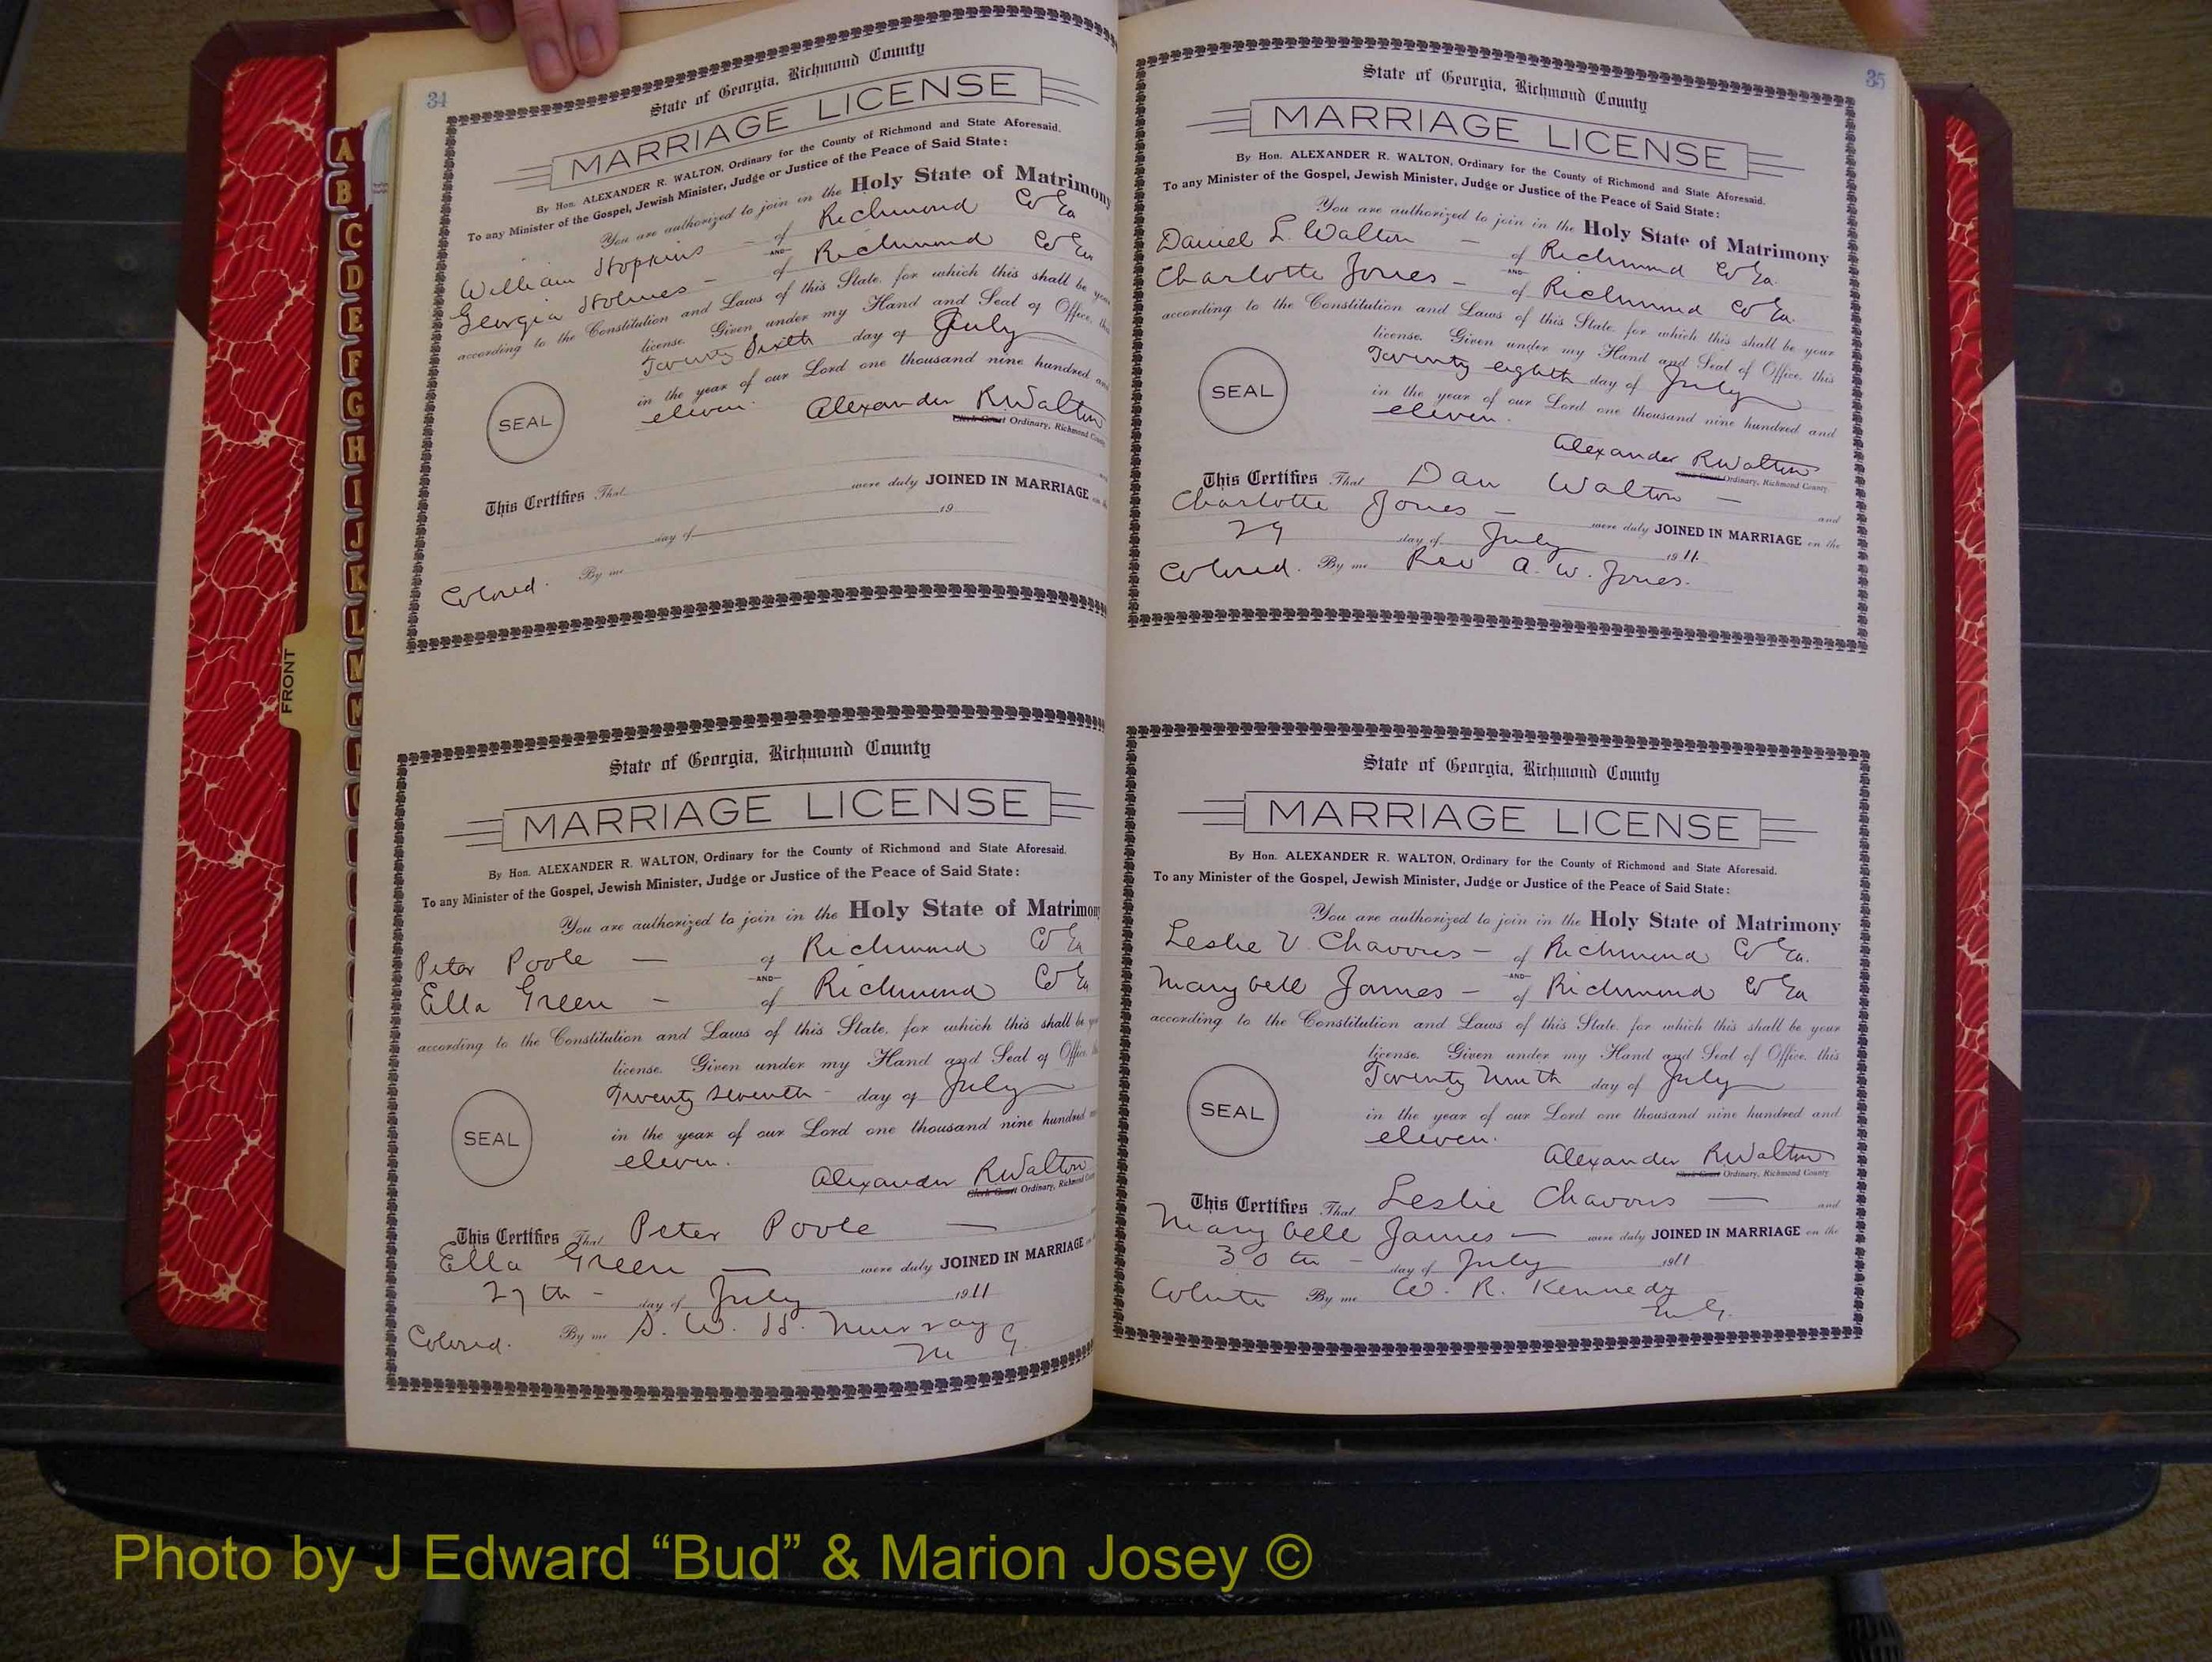 34
State of Georgia, Richmond County
MARRIAGE LICENSE
By Hon. ALEXANDER R. WALTON, Ordinary for the County of Richmond and State Aforesaid.
To any Minister of the Gospel, Jewish Minister, Judge or Justice of the Peace of Said State:
You are authorized to join in the Holy State of Matrimony
William Hopkins - of Richmond Co Ga
AND
Georgia Holmes - of Richmond Co Ga
according to the Constitution and Laws of this State, for which this shall be your
license. Given under my Hand and Seal of Office, this
Twenty Sixth day of July
in the year of our Lord one thousand nine hundred and
eleven.
SEAL
Alexander R Walton
Clerk Court Ordinary, Richmond County
This Certifies That
were duly JOINED IN MARRIAGE on the
day of 19
Colored. By me
State of Georgia, Richmond County
MARRIAGE LICENSE
By Hon. ALEXANDER R. WALTON, Ordinary for the County of Richmond and State Aforesaid.
To any Minister of the Gospel, Jewish Minister, Judge or Justice of the Peace of Said State:
You are authorized to join in the Holy State of Matrimony
Peter Poole - of Richmond Co Ga
AND
Ella Green - of Richmond Co Ga
according to the Constitution and Laws of this State, for which this shall be your
license. Given under my Hand and Seal of Office, this
Twenty seventh - day of July
in the year of our Lord one thousand nine hundred and
eleven.
SEAL
Alexander R Walton
Clerk Court Ordinary, Richmond County
This Certifies That Peter Poole -
Ella Green - were duly JOINED IN MARRIAGE on
27th - day of July 1911
Colored. By me S. W. H. Murray
M G.
35
State of Georgia, Richmond County
MARRIAGE LICENSE
By Hon. ALEXANDER R. WALTON, Ordinary for the County of Richmond and State Aforesaid.
To any Minister of the Gospel, Jewish Minister, Judge or Justice of the Peace of Said State:
You are authorized to join in the Holy State of Matrimony
Daniel L. Walton - of Richmond Co Ga.
AND
Charlotte Jones - of Richmond Co Ga.
according to the Constitution and Laws of this State, for which this shall be your
license. Given under my Hand and Seal of Office, this
Twenty eighth day of July
in the year of our Lord one thousand nine hundred and
eleven.
SEAL
Alexander R Walton
Clerk Court Ordinary, Richmond County
This Certifies That Dan Walton - and
Charlotte Jones - were duly JOINED IN MARRIAGE on the
29 day of July 1911.
Colored. By me Rev A. W. Jones.
State of Georgia, Richmond County
MARRIAGE LICENSE
By Hon. ALEXANDER R. WALTON, Ordinary for the County of Richmond and State Aforesaid.
To any Minister of the Gospel, Jewish Minister, Judge or Justice of the Peace of Said State:
You are authorized to join in the Holy State of Matrimony
Leslie V. Chavous - of Richmond Co Ga.
AND
Mary bell James - of Richmond Co Ga
according to the Constitution and Laws of this State, for which this shall be your
license. Given under my Hand and Seal of Office, this
Twenty Ninth day of July
in the year of our Lord one thousand nine hundred and
eleven.
SEAL
Alexander R Walton
Clerk Court Ordinary, Richmond County
This Certifies That Leslie Chavous - and
Mary bell James - were duly JOINED IN MARRIAGE on the
30th - day of July 1911
White By me W. R. Kennedy
M G.
A
B
C
D
E
F
G
H
I
J
K
L
M
FRONT
Photo by J Edward “Bud” & Marion Josey ©